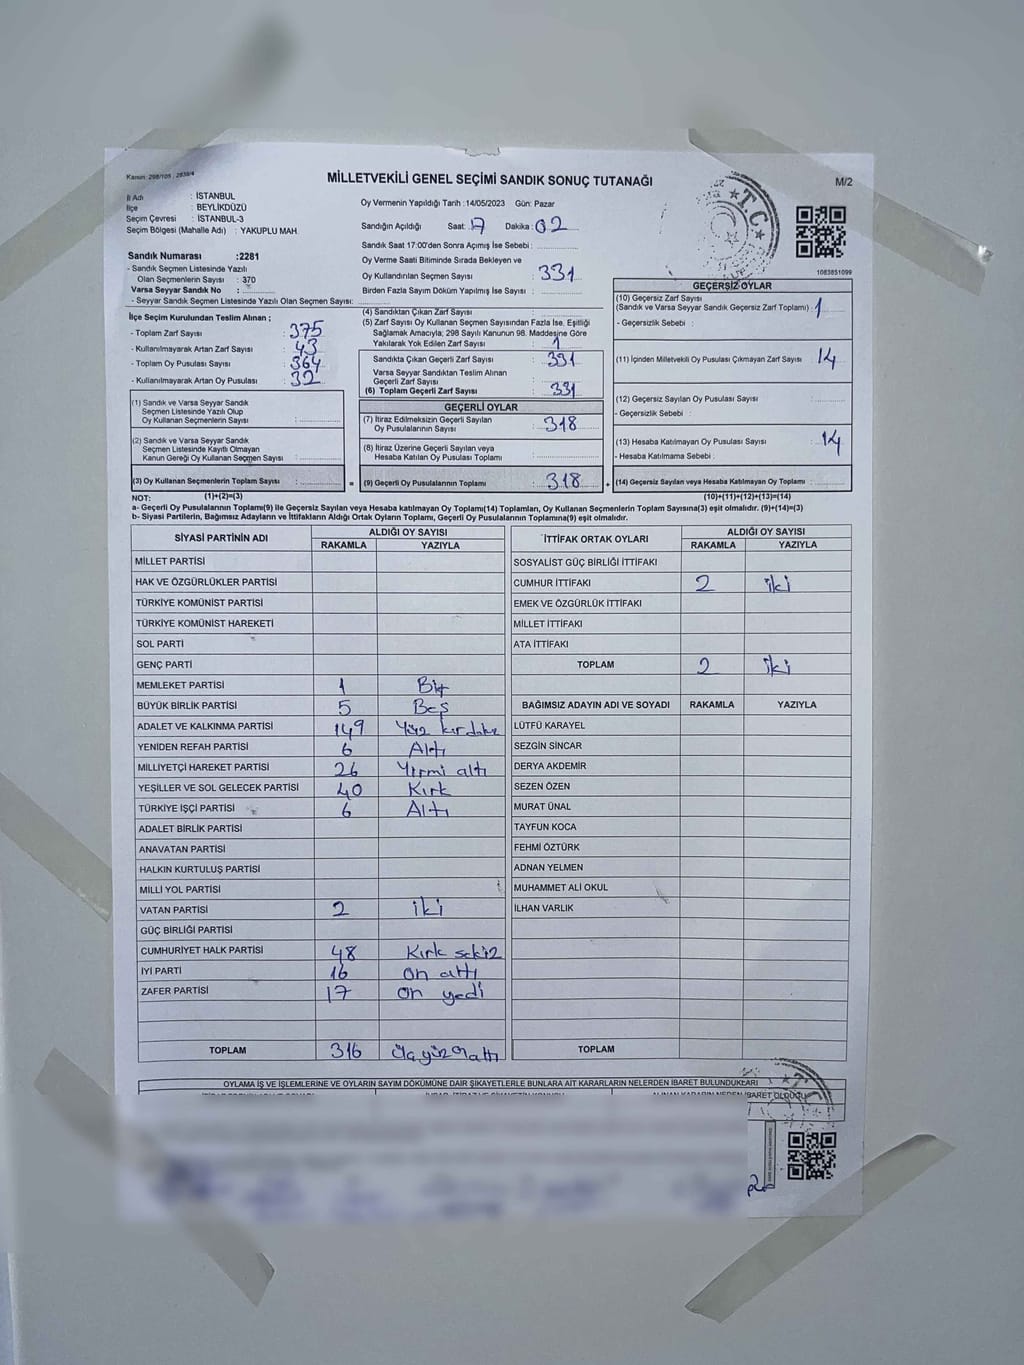 Kanun: 298/105, 2839/4
MİLLETVEKİLİ GENEL SEÇİMİ SANDIK SONUÇ TUTANAĞI
M/2
İl Adı : İSTANBUL
İlçe : BEYLİKDÜZÜ
Seçim Çevresi : İSTANBUL-3
Seçim Bölgesi (Mahalle Adı) : YAKUPLU MAH.
Oy Vermenin Yapıldığı Tarih :14/05/2023 Gün: Pazar
Sandığın Açıldığı Saat: 17 Dakika: 02
Sandık Saat 17:00'den Sonra Açımış İse Sebebi :
Oy Verme Saati Bitiminde Sırada Bekleyen ve
Oy Kullandırılan Seçmen Sayısı : 331
Birden Fazla Sayım Döküm Yapılmış İse Sayısı :
T.C
1083851099
Sandık Numarası :2281
- Sandık Seçmen Listesinde Yazılı
Olan Seçmenlerin Sayısı : 370
Varsa Seyyar Sandık No :
- Seyyar Sandık Seçmen Listesinde Yazılı Olan Seçmen Sayısı:
İlçe Seçim Kurulundan Teslim Alınan ;
- Toplam Zarf Sayısı : 375
- Kullanılmayarak Artan Zarf Sayısı : 43
- Toplam Oy Pusulası Sayısı : 364
- Kullanılmayarak Artan Oy Pusulası : 32
(1) Sandık ve Varsa Seyyar Sandık
Seçmen Listesinde Yazılı Olup
Oy Kullanan Seçmenlerin Sayısı :
(2) Sandık ve Varsa Seyyar Sandık
Seçmen Listesinde Kayıtlı Olmayan
Kanun Gereği Oy Kullanan Seçmen Sayısı :
(3) Oy Kullanan Seçmenlerin Toplam Sayısı :
(1)+(2)=(3)
(4) Sandıktan Çıkan Zarf Sayısı :
(5) Zarf Sayısı Oy Kullanan Seçmen Sayısından Fazla İse, Eşitliği
Sağlamak Amacıyla; 298 Sayılı Kanunun 98. Maddesine Göre
Yakılarak Yok Edilen Zarf Sayısı : 1
Sandıkta Çıkan Geçerli Zarf Sayısı : 331
Varsa Seyyar Sandıktan Teslim Alınan
Geçerli Zarf Sayısı :
(6) Toplam Geçerli Zarf Sayısı : 331
GEÇERLİ OYLAR
(7) İtiraz Edilmeksizin Geçerli Sayılan
Oy Pusulalarının Sayısı : 318
(8) İtiraz Üzerine Geçerli Sayılan veya
Hesaba Katılan Oy Pusulası Toplamı :
= (9) Geçerli Oy Pusulalarının Toplamı : 318
GEÇERSİZ OYLAR
(10) Geçersiz Zarf Sayısı
(Sandık ve Varsa Seyyar Sandık Geçersiz Zarf Toplamı) : 1
- Geçersizlik Sebebi :
(11) İçinden Milletvekili Oy Pusulası Çıkmayan Zarf Sayısı : 14
(12) Geçersiz Sayılan Oy Pusulası Sayısı :
- Geçersizlik Sebebi :
(13) Hesaba Katılmayan Oy Pusulası Sayısı : 14
- Hesaba Katılmama Sebebi :
+ (14) Geçersiz Sayılan veya Hesaba Katılmayan Oy Toplamı :
(10)+(11)+(12)+(13)=(14)
NOT:
a- Geçerli Oy Pusulalarının Toplamı(9) ile Geçersiz Sayılan veya Hesaba katılmayan Oy Toplamı(14) Toplamları, Oy Kullanan Seçmenlerin Toplam Sayısına(3) eşit olmalıdır. (9)+(14)=(3)
b- Siyasi Partilerin, Bağımsız Adayların ve İttifakların Aldığı Ortak Oyların Toplamı, Geçerli Oy Pusulalarının Toplamına(9) eşit olmalıdır.
SİYASİ PARTİNİN ADI ALDIĞI OY SAYISI
RAKAMLA YAZIYLA
MİLLET PARTİSİ
HAK VE ÖZGÜRLÜKLER PARTİSİ
TÜRKİYE KOMÜNİST PARTİSİ
TÜRKİYE KOMÜNİST HAREKETİ
SOL PARTİ
GENÇ PARTİ
MEMLEKET PARTİSİ 1 Bir
BÜYÜK BİRLİK PARTİSİ 5 Beş
ADALET VE KALKINMA PARTİSİ 149 Yüz
YENİDEN REFAH PARTİSİ 6 Altı
MİLLİYETÇİ HAREKET PARTİSİ 26 Yirmi altı
YEŞİLLER VE SOL GELECEK PARTİSİ 40 Kırk
TÜRKİYE İŞÇİ PARTİSİ 6 Altı
ADALET BİRLİK PARTİSİ
ANAVATAN PARTİSİ
HALKIN KURTULUŞ PARTİSİ
MİLLİ YOL PARTİSİ
VATAN PARTİSİ 2 iki
GÜÇ BİRLİĞİ PARTİSİ
CUMHURİYET HALK PARTİSİ 48 Kırk sekiz
İYİ PARTİ 16 on altı
ZAFER PARTİSİ 17 on yedi
TOPLAM 316 üçyüzonaltı
İTTİFAK ORTAK OYLARI ALDIĞI OY SAYISI
RAKAMLA YAZIYLA
SOSYALİST GÜÇ BİRLİĞİ İTTİFAKI
CUMHUR İTTİFAKI 2 iki
EMEK VE ÖZGÜRLÜK İTTİFAKI
MİLLET İTTİFAKI
ATA İTTİFAKI
TOPLAM 2 iki
BAĞIMSIZ ADAYIN ADI VE SOYADI RAKAMLA YAZIYLA
LÜTFÜ KARAYEL
SEZGİN SİNCAR
DERYA AKDEMİR
SEZEN ÖZEN
MURAT ÜNAL
TAYFUN KOCA
FEHMİ ÖZTÜRK
ADNAN YELMEN
MUHAMMET ALİ OKUL
İLHAN VARLIK
TOPLAM
OYLAMA İŞ VE İŞLEMLERİNE VE OYLARIN SAYIM DÖKÜMÜNE DAİR ŞİKAYETLERLE BUNLARA AİT KARARLARIN NELERDEN İBARET BULUNDUKLARI
T.C